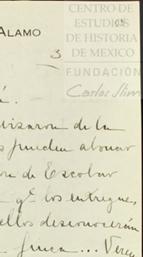 CENTRO DE
ESTUDIOS
DE HISTORIA
DE MEXICO
FUNDACIÓN
Carlos Slim
ALAMO
3
á.
izaron de la
s pueden abonar
on de Escobar
qe los entregues,
ellos desconocerán
finca... Veren